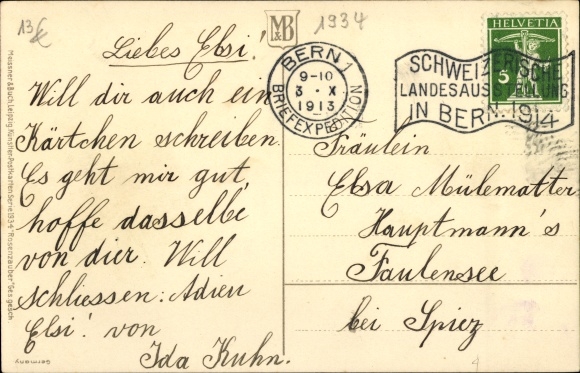 13€
M&B
1934
Liebes Elsi!
Will dir auch ein
Kärtchen schreiben.
Es geht mir gut,
hoffe dasselbe
von dier. Will
schliessen: Adieu
Elsi! von
Ida Kuhn.
BERN 1
9-10
3 · X
1913
BRIEFEXPEDITION
HELVETIA
5
SCHWEIZERISCHE
LANDESAUSSTELLUNG
IN BERN 1914
Fräulein
Elsa Mülematter
Hauptmann's
Faulensee
bei Spiez
Meissner & Buch, Leipzig. Künstler-Postkarten Serie 1934 "Rosenzauber" Ges. gesch.
Germany